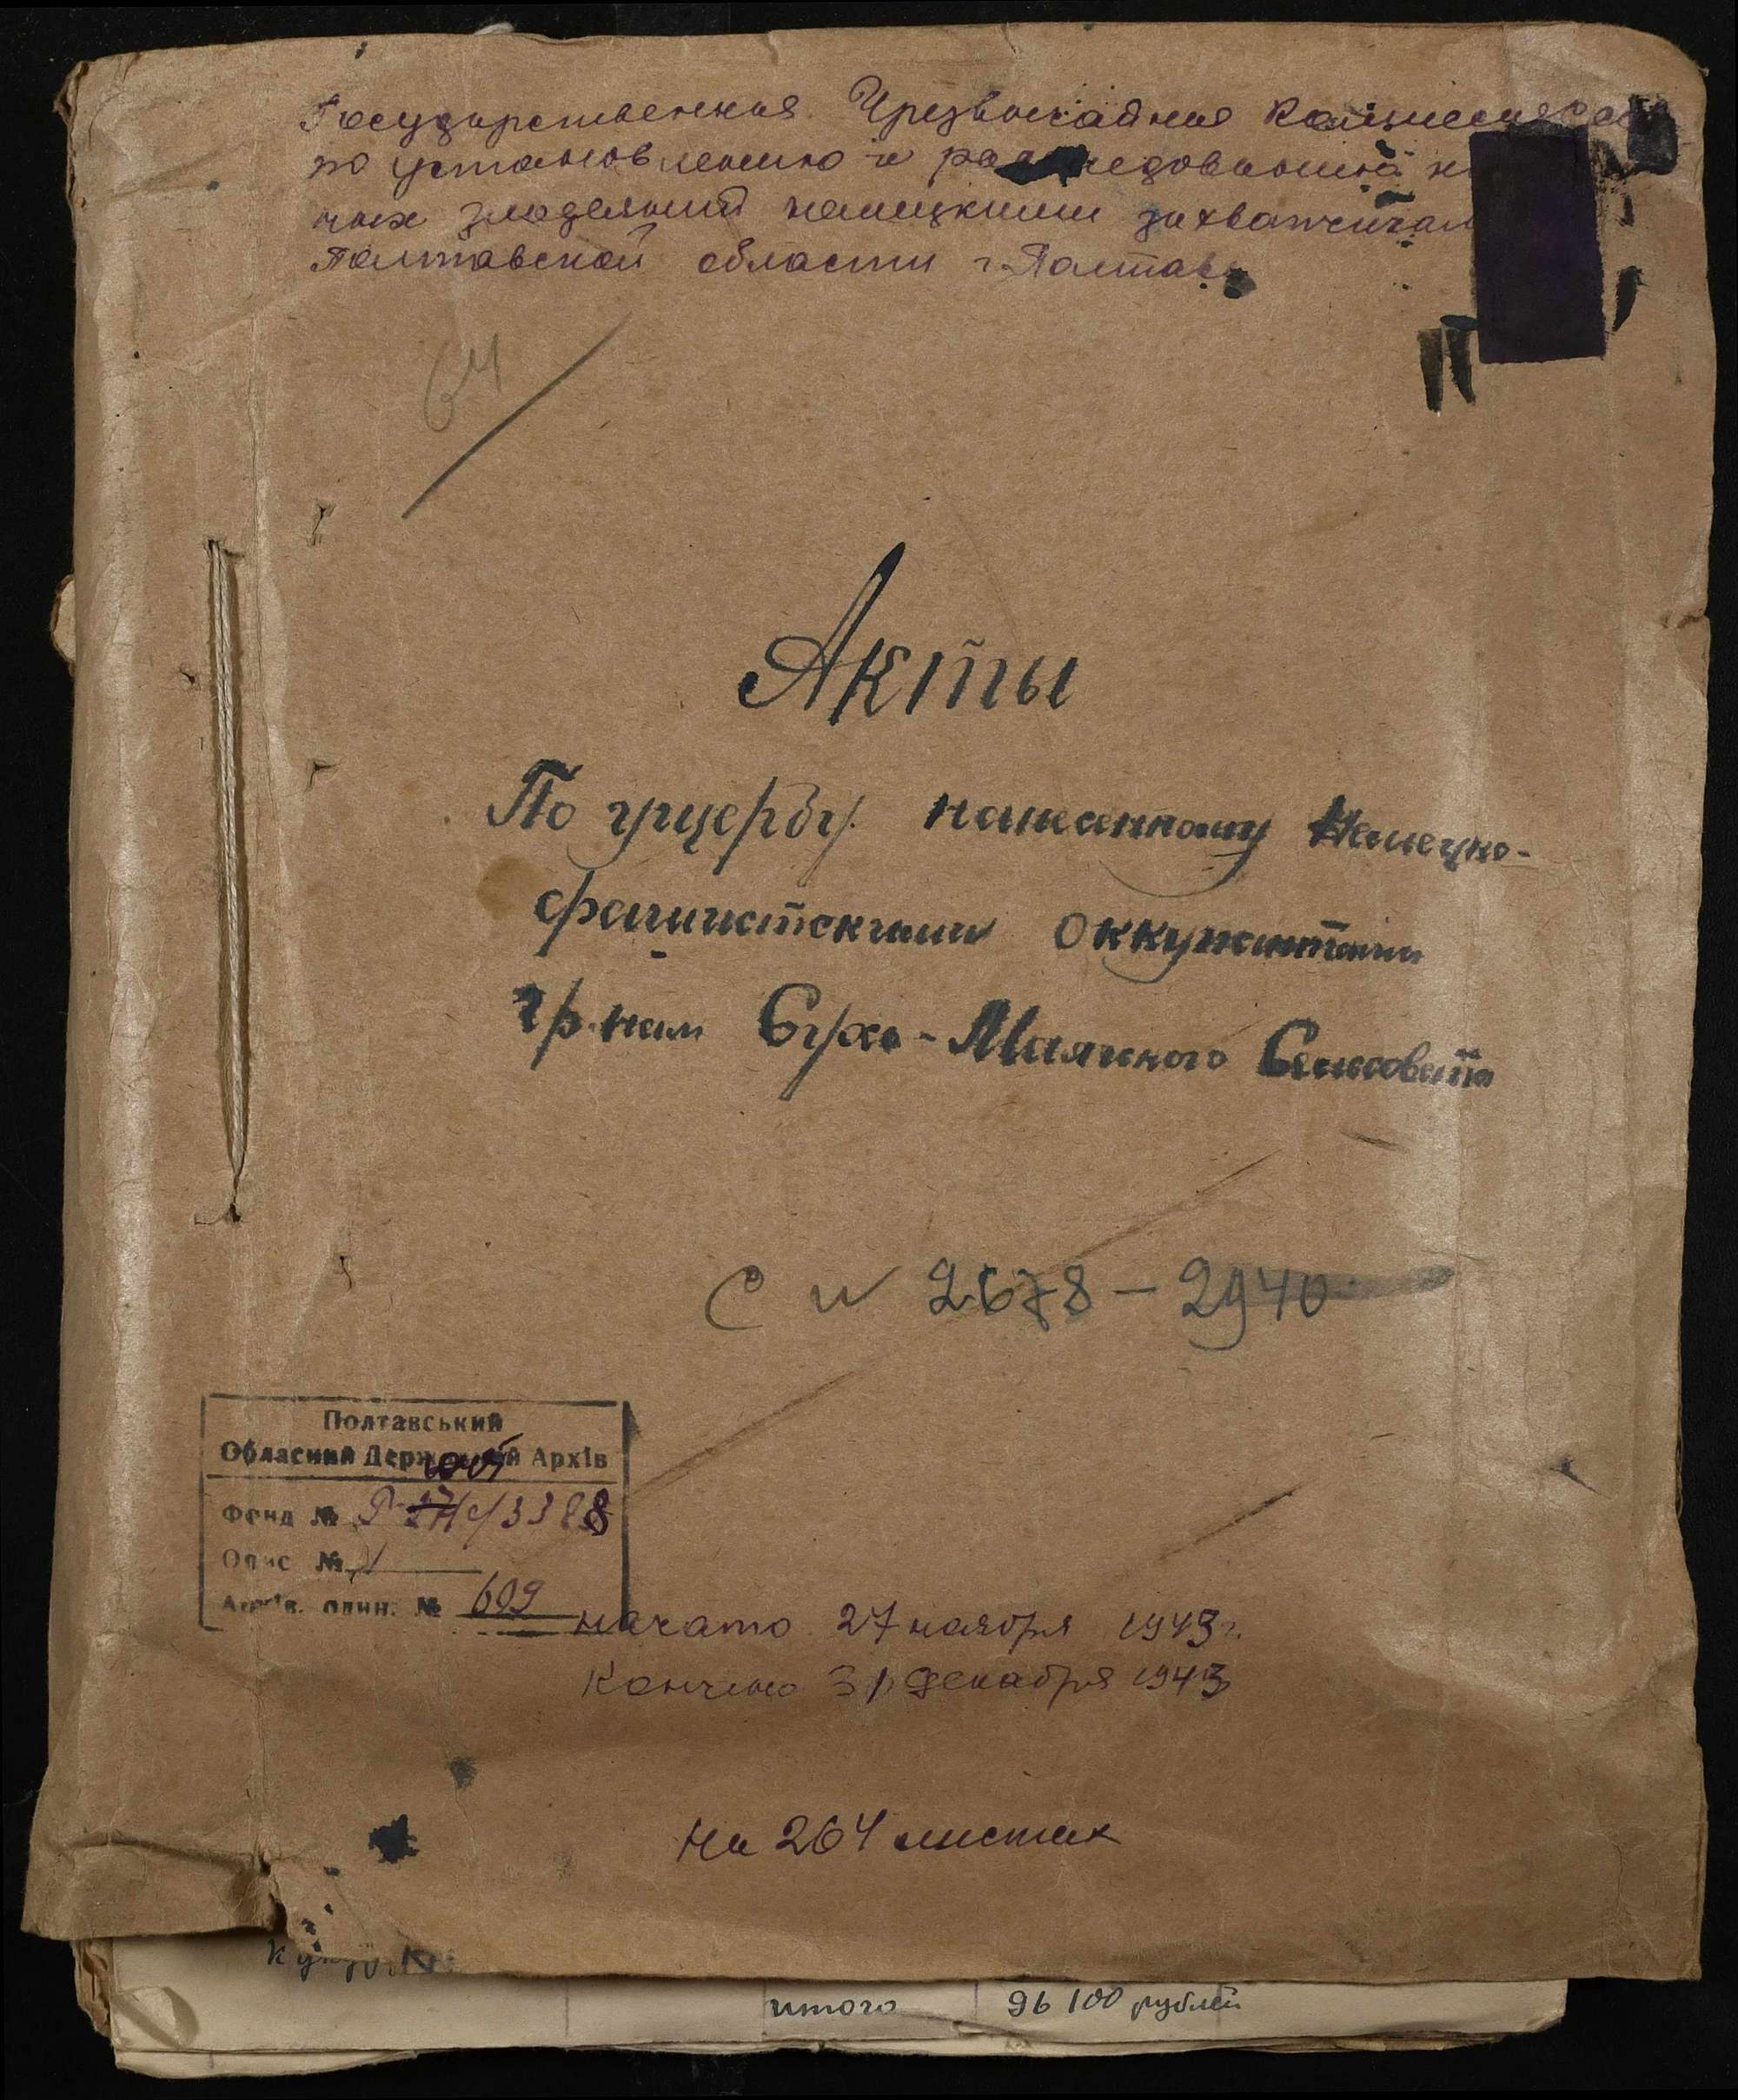 Государственная Чрезвычайная Комиссия
по установлению и расследованию
ных злодеяний немецкими захватчикам
Полтавской области г. Полтавы
64
Акты
По ущербу нанесенному Немецко-
фашистскими оккупантами
гр-нам Сухо-Маячкого Сельсовета
С № 2678 – 2940
Полтавський
Обласний Державний Архів
Фонд № Р- 3388
Опис № 1
Архів. один. № 609
начато 27 ноября 1943 г.
Кончено 31 декабря 1943
На 264 листах
итого 96 100 рублей